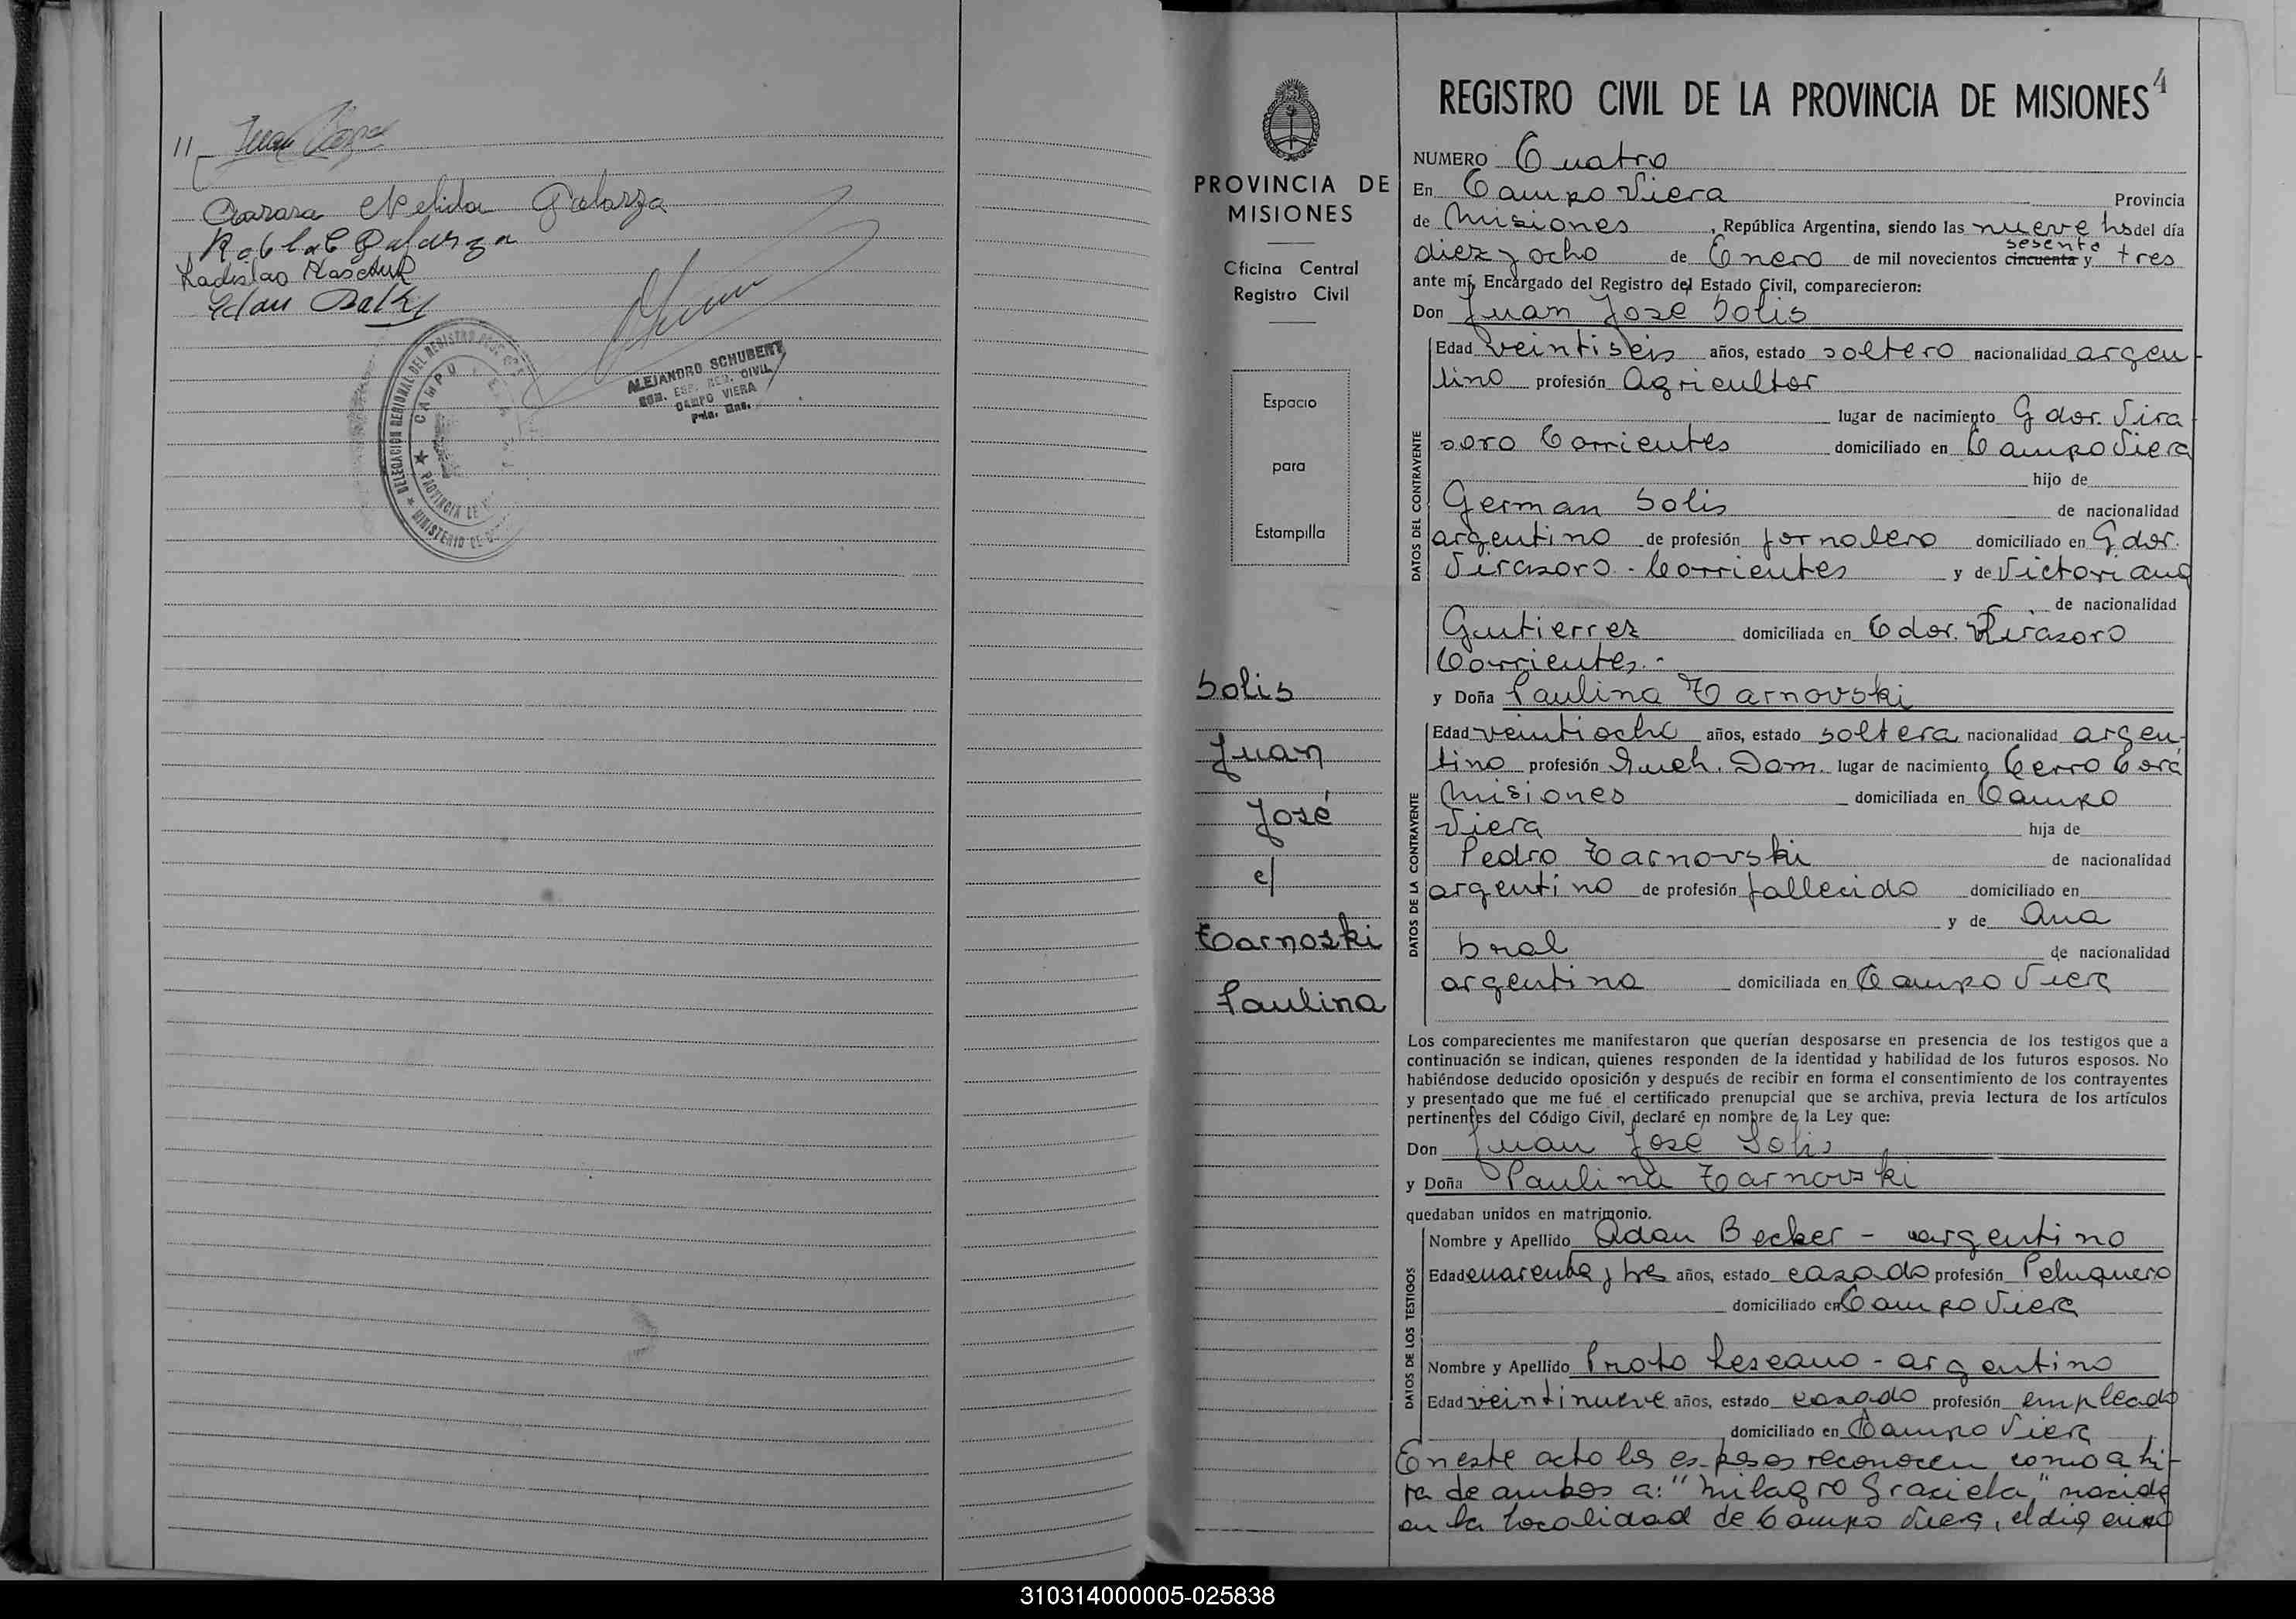 11
Juan
Nelida Galarza
Galarza
Ladislao
ALEJANDRO SCHUBERT
REG. CIVIL
CAMPO VIERA
Pcia. Mns.
DELEGACION REGIONAL DEL REGISTRO
CAMPO
PROVINCIA DE
MINISTERIO DE
PROVINCIA DE
MISIONES
Oficina Central
Registro Civil
Espacio
para
Estampilla
Solis
Juan
José
c/
Tarnoski
Paulina
4
REGISTRO CIVIL DE LA PROVINCIA DE MISIONES
NUMERO Cuatro
En Campo Viera Provincia
de Misiones, República Argentina, siendo las nueve hs del día
sesenta
diez y ocho de Enero de mil novecientos cincuenta y tres
ante mí, Encargado del Registro del Estado Civil, comparecieron:
Don Juan Jose Solis
Edad veintiseis años, estado soltero nacionalidad argen-
tino profesión Agricultor
lugar de nacimiento Gdor. Vira-
soro Corrientes domiciliado en Campo Viera
hijo de
German Solis de nacionalidad
argentino de profesión jornalero domiciliado en Gdor.
Virasoro - Corrientes y de Victoriana
de nacionalidad
Gutierrez domiciliada en Gdor. Virasoro
Corrientes.-
y Doña Paulina Tarnovski
Edad veintiocho años, estado soltera nacionalidad argen-
tino profesión Queh. Dom. lugar de nacimiento Cerro Corá
Misiones domiciliada en Campo
Viera hija de
Pedro Tarnovski de nacionalidad
argentino de profesión fallecido domiciliado en
y de Ana
de nacionalidad
argentina domiciliada en Campo Viera
DATOS DEL CONTRAYENTE
DATOS DE LA CONTRAYENTE
Los comparecientes me manifestaron que querían desposarse en presencia de los testigos que a
continuación se indican, quienes responden de la identidad y habilidad de los futuros esposos. No
habiéndose deducido oposición y después de recibir en forma el consentimiento de los contrayentes
y presentado que me fué el certificado prenupcial que se archiva, previa lectura de los artículos
pertinentes del Código Civil, declaré en nombre de la Ley que:
Don Juan José Solis
y Doña Paulina Tarnovski
quedaban unidos en matrimonio.
Nombre y Apellido Adan Becker - argentino
Edad cuarenta y tres años, estado casado profesión Peluquero
domiciliado en Campo Viera
Nombre y Apellido Proto Lescano - argentino
Edad veintinueve años, estado casado profesión empleado
domiciliado en Campo Viera
DATOS DE LOS TESTIGOS
En este acto los esposos reconocen como a hi-
ja de ambos a: "Milagro Graciela" nacida
en la localidad de Campo Viera, el dia cinco
310314000005-025838